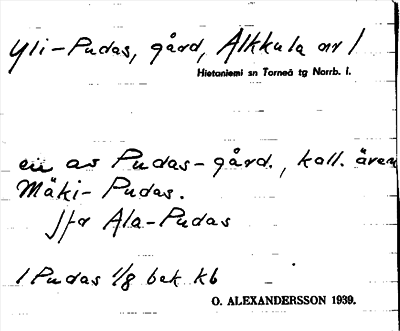 Yli-Pudas, gård, Alkkula nr 1
Hietaniemi sn Torneå tg Norrb. l.
en av Pudas-gård., kall. även
Mäki-Pudas.
Jfr Ala-Pudas
1 Pudas 1/8 bek kb
O. ALEXANDERSSON 1939.